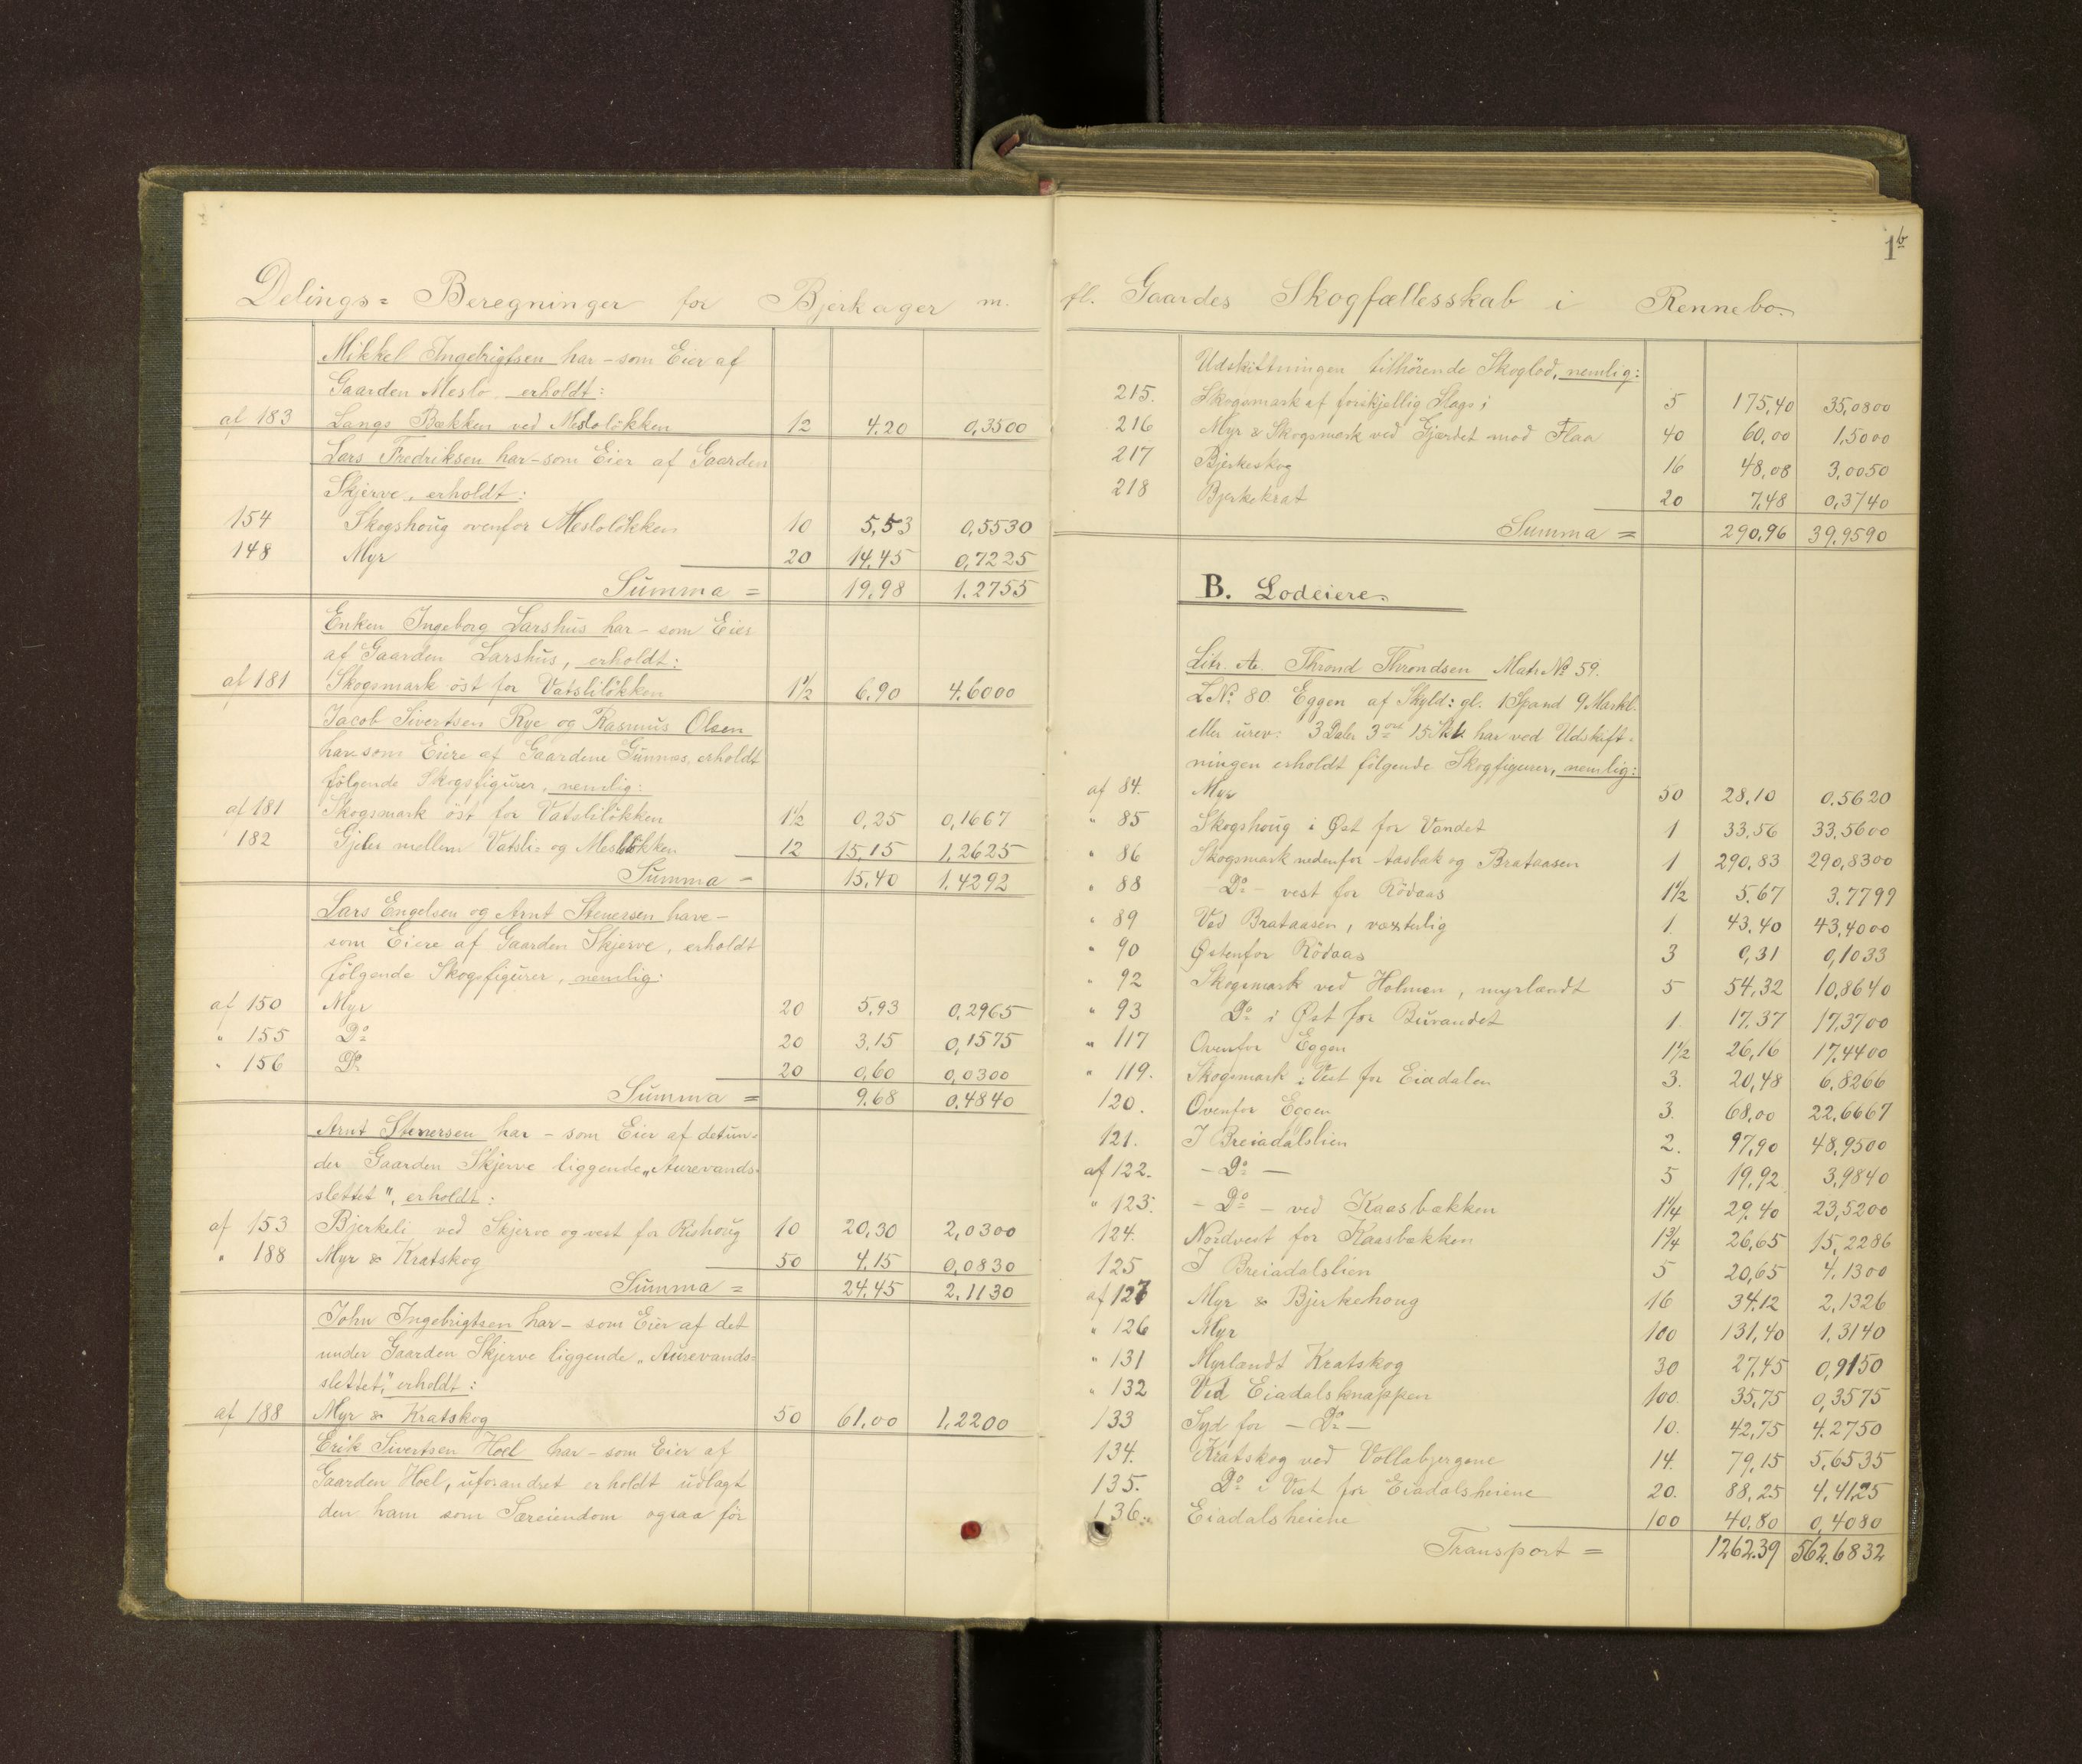 Delings- Beregninger for Bjerkager m.
Mikkel Ingebrigtsen har - som Eier af
Gaarden Meslo, erholdt:
af 183 Langs Bækken ved Mesloløkken 12 4.20 0,3500
Lars Fredriksen har - som Eier af Gaarden
Skjerve, erholdt:
154 Skogshoug ovenfor Mesloløkken 10 5,53 0,5530
148 Myr 20 14,45 0,7225
Summa = 19,98 1.2755
Enken Ingeborg Larshus har - som Eier
af Gaarden Larshus, erholdt:
af 181 Skogsmark öst for Vatsliløkken 1½ 6,90 4.6000
Jacob Sivertsen Rye og Rasmus Olsen
har som Eiere af Gaardene Gunnæs, erholdt
følgende Skogsfigurer, nemlig:
af 181 Skogsmark öst for Vatsliløkken 1½ 0,25 0,1667
182 mellem Vatsli- og Mesloløkken 12 15,15 1,2625
Summa - 15,40 1,4292
Lars Engelsen og Arnt Stenersen have -
som Eiere af Gaarden Skjerve, erholdt
følgende Skogsfigurer, nemlig:
af 150 Myr 20 5,93 0,2965
" 155 Do 20 3.15 0,1575
" 156 Do 20 0,60 0,0300
Summa = 9.68 0,4840
Arnt Stenersen har - som Eier af det un-
der Gaarden Skjerve liggende „Aurevands-
slettet", erholdt:
af 153 Bjerkeli ved Skjerve og vest for Rishoug 10 20,30 2,0300
" 188 Myr & Kratskog 50 4,15 0,0830
Summa = 24,45 2,1130
John Ingebrigtsen har - som Eier af det
under Gaarden Skjerve liggende „Aurevands-
slettet," erholdt:
af 188 Myr & Kratskog 50 61,00 1,2200
Erik Sivertsen Hoel har - som Eier af
Gaarden Hoel, uforandret erholdt udlagt
den ham som Særeiendom ogsaa før
1b
fl. Gaardes Skogfællesskab i Rennebo.
Udskiftningen tilhørende Skoglod, nemlig:
215. Skogsmark af forskjellig Slags; 5 175,40 35,0800
216 Myr & Skogsmark ved Gjærdet mod Flaa 40 60,00 1,5000
217 Bjerkeskog 16 48,08 3,0050
218 Bjerkekrat 20 7,48 0,3740
Summa = 290,96 39,9590
B. Lodeiere.
Litr. Aa. Thrond Throndsen Matr No 59.
L No 80 Eggen af Skyld: gl. 1 Spand 9 Markl.
eller urev: 3 Daler 3 ort 15 Sk har ved Udskift-
ningen erholdt følgende Skogfigurer, nemlig:
af 84. Myr 50 28,10 0.5620
" 85 Skogshoug i Øst for Vandet 1 33,56 33,5600
" 86 Skogsmark nedenfor Aasbak og Brataasen 1 290,83 290,8300
" 88 - Do - vest for Rödaas 1½ 5.67 3.7799
" 89 Ved Brataasen, växterlig 1 43,40 43,4000
" 90 Østenfor Rödaas 3 0,31 0,1033
" 92 Skogsmark ved Holmen, myrlændt 5 54,32 10,8640
" 93 Do i Øst for Burvandet 1 17,37 17,3700
" 117 Ovenfor Eggen 1½ 26,16 17,4400
" 119. Skogsmark i Vest for Eiadalen 3. 20,48 6,8266
120. Ovenfor Eggen 3. 68,00 22,6667
121. I Breiadalslien 2. 97,90 48,9500
af 122. - Do - 5 19,92 3,9840
" 123. - Do - ved Kaasbækken 1¼ 29,40 23,5200
124. Nordvest for Kaasbækken 1¾ 26,65 15,2286
125 I Breiadalslien 5 20,65 4.1300
af 127 Myr & Bjerkehoug 16 34,12 2,1326
" 126 Myr 100 131,40 1,3140
" 131 Myrlændt Kratskog 30 27,45 0,9150
" 132 Ved Eiadalsknappen 100 35,75 0,3575
133 Syd for - Do - 10. 42,75 4.2750
134. Kratskog ved Vollabjergene 14. 79,15 5,6535
135. Do i Vest for Eiadalsheiene 20. 88,25 4,4125
136. Eiadalsheiene 100 40,80 0,4080
Transport = 1262.39 562.6832